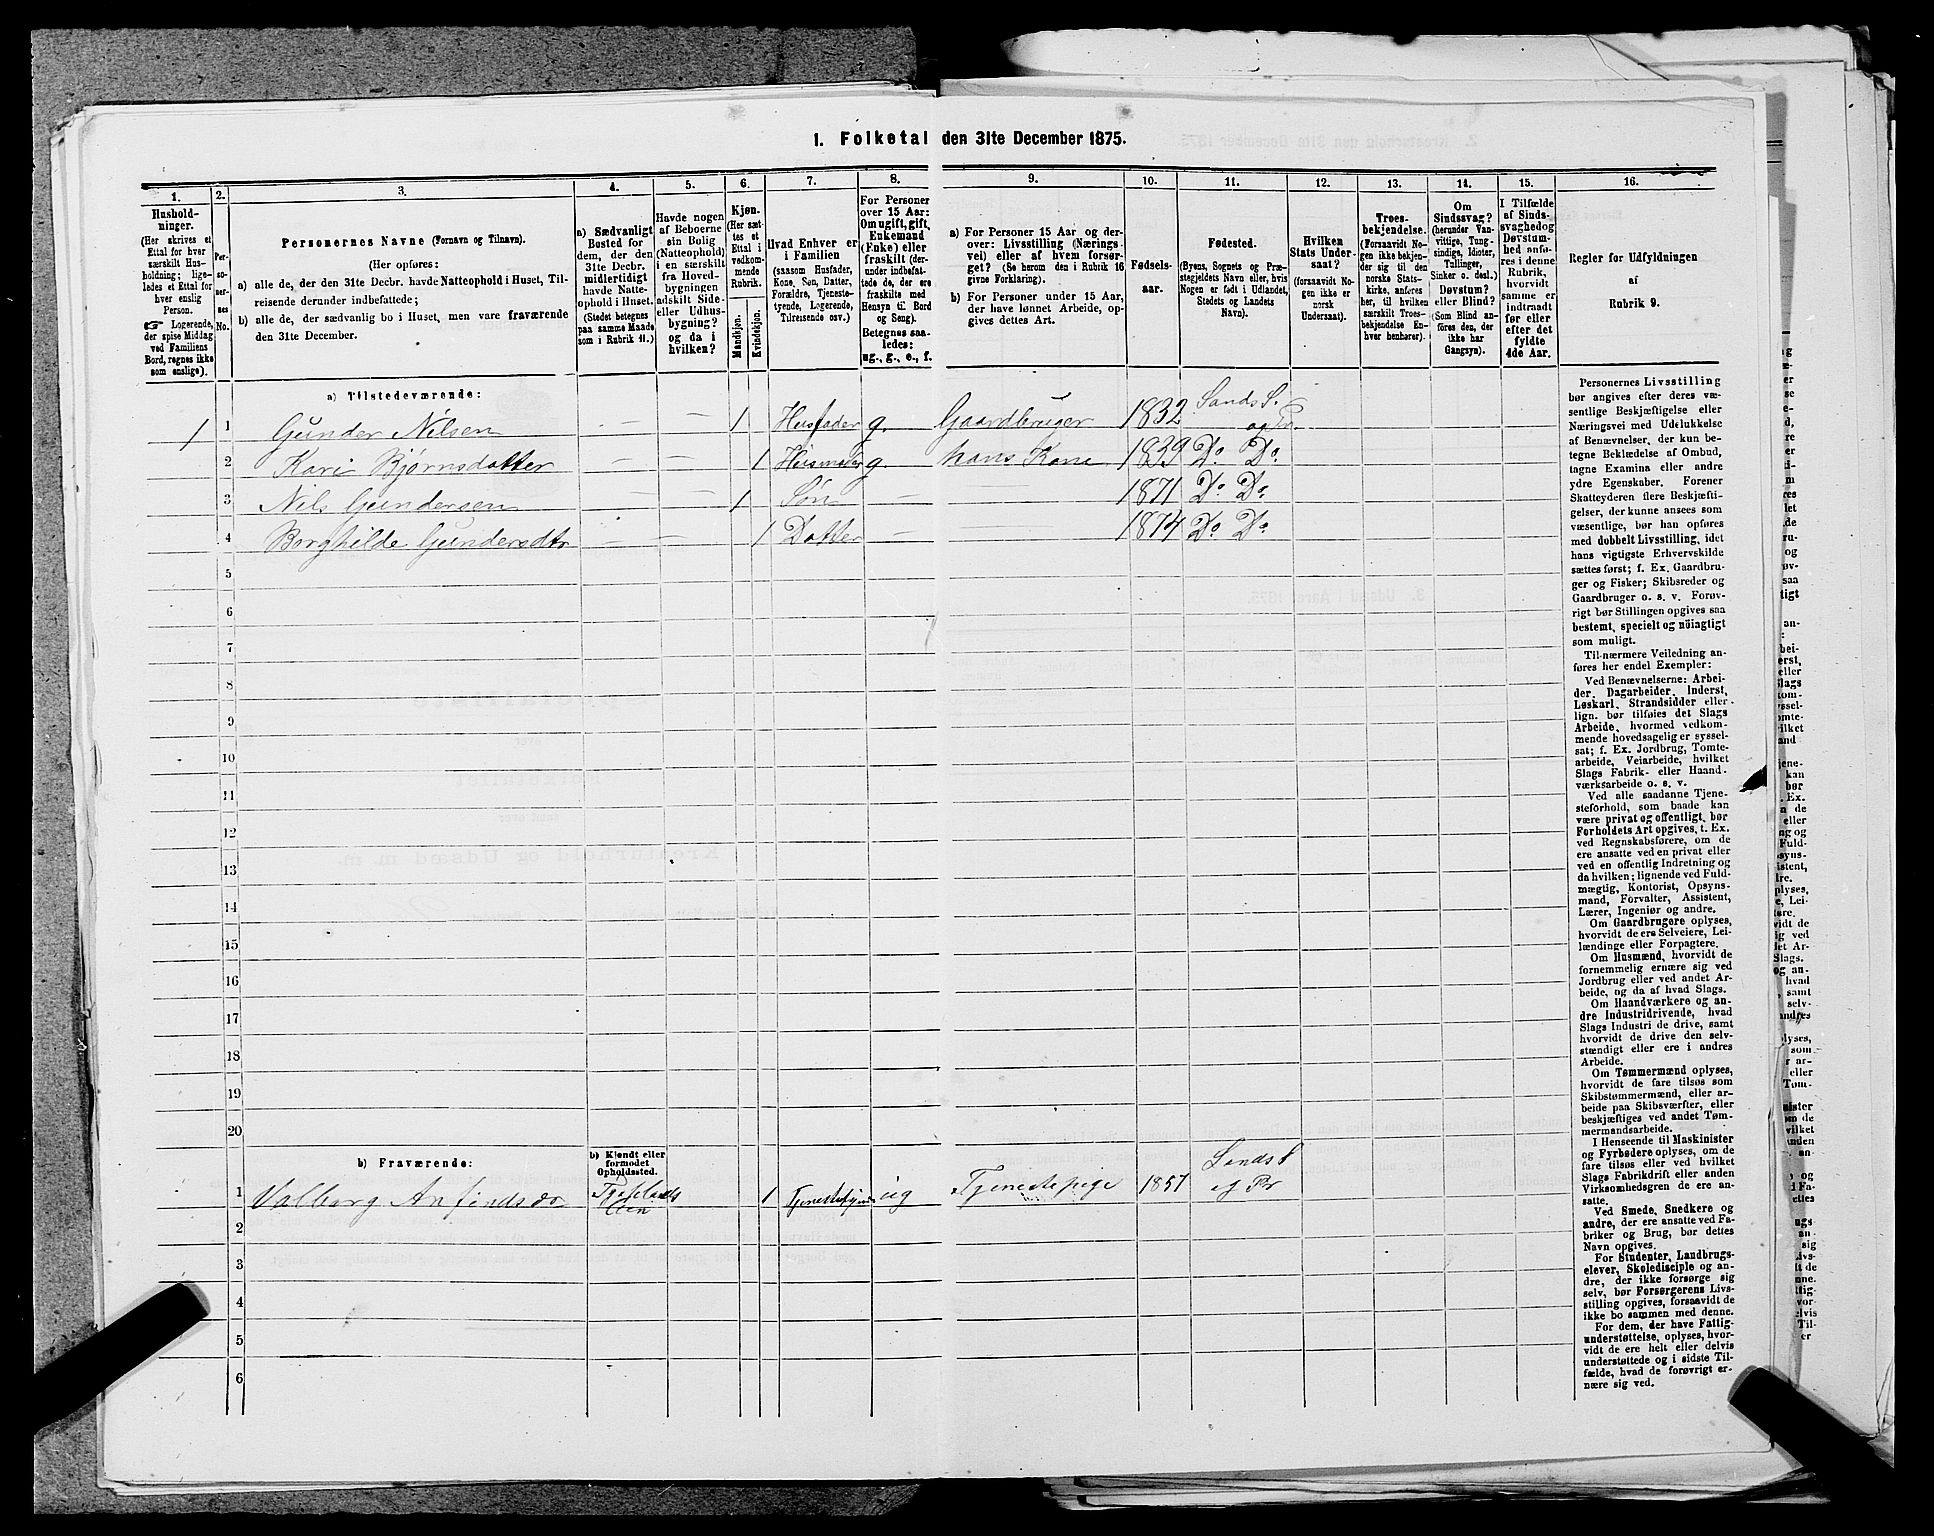 1. Folketal den 31te December 1875.
1. 2. 3. 4. 5. 6. 7. 8. 9. 10. 11. 12. 13. 14. 15. 16.
Hushold-
ninger.
(Her skrives et
Ettal for hver
særskilt Hus-
holdning; lige-
ledes et Ettal for
hver enslig
Person.
☞ Logerende,
der spise Middag
ved Familiens
Bord, regnes ikke
som enslige).
Per-
so-
ner-
nes
No.
Personernes Navne (Fornavn og Tilnavn).
(Her opføres:
a) alle de, der den 31te Decbr. havde Natteophold i Huset, Til-
reisende derunder indbefattede;
b) alle de, der sædvanlig bo i Huset, men vare fraværende
den 31te December.
a) Sædvanligt
Bosted for
dem, der den
31te Decbr.
midlertidigt
havde Natte-
ophold i Huset.
(Stedet betegnes
paa samme Maade
som i Rubrik 11.)
Havde nogen
af Beboerne
sin Bolig
(Natteophold)
i en særskilt
fra Hoved-
bygningen
adskilt Side-
eller Udhus-
bygning?
og da i
hvilken?
Kjøn.
(Her sæt-
tes et
Ettal i
vedkom-
mende
Rubrik.
Mandkjøn.
Kvindekjøn.
Hvad Enhver er
i Familien
(saasom Husfader,
Kone, Søn, Datter,
Forældre, Tjeneste-
tyende, Logerende,
Tilreisende osv.)
For Personer
over 15 Aar:
Om ugift, gift,
Enkemand
(Enke) eller
fraskilt (der-
under indbefat-
tede de, der ere
fraskilte med
Hensyn til Bord
og Seng).
Betegnes saa-
ledes:
ug., g., e., f.
a) For Personer 15 Aar og der-
over: Livsstilling (Nærings-
vei) eller af hvem forsør-
get? (Se herom den i Rubrik 16
givne Forklaring).
b) For Personer under 15 Aar,
der have lønnet Arbeide, op-
gives dettes Art.
Fødsels-
aar.
Fødested.
(Byens, Sognets og Præ-
stegjeldets Navn eller, hvis
Nogen er født i Udlandet,
Stedets og Landets
Navn).
Hvilken
Stats Under-
saat?
(forsaavidt No-
gen ikke er
norsk
Undersaat).
Troes-
bekjendelse.
(Forsaavidt No-
gen ikke bekjen-
der sig til den
norske Stats-
kirke, anføres
her, til hvilken
særskilt Troes-
bekjendelse En-
hver henhører).
Om
Sindssvag?
(herunder Van-
vittige, Tung-
sindige, Idioter,
Tullinger,
Sinker o. desl.)
Døvstum?
eller Blind?
(Som Blind an-
føres den, der
ikke har
Gangsyn).
I Tilfælde
af Sinds-
svaghed og
Døvstum-
hed anfø-
res i denne
Rubrik,
hvorvidt
samme er
indtraadt
før eller
efter det
fyldte
4de Aar.
Regler for Udfyldningen
af
Rubrik 9.
a) Tilstedeværende:
1 1 Gunder Nilsen — — 1 Husfader g. Gaardbruger 1832 Sands S.
og Pr
2 Kari Bjørnsdatter — — 1 Husmoder g. hans Kone 1839 Do. Do.
3 Nils Gundersen — — 1 Søn — — 1871 Do. Do.
4 Borghilde Gundersdtr — — 1 Datter — — 1874 Do. Do.
5
6
7
8
9
10
11
12
13
14
15
16
17
18
19
20
b) Fraværende:
b) Kjendt eller
formodet
Opholdssted.
1 Valborg Anfindsdr 1 ug Tjenestepige 1857 Sands S
og Pr
2
3
4
5
6
Personernes Livsstilling
bør angives efter deres væ-
sentlige Beskjæftigelse eller
Næringsvei med Udelukkelse
af Benævnelser, der kun be-
tegne Beklædelse af Ombud,
tagne Examina eller andre
ydre Egenskaber. Forener
Skatteyderen flere Beskjæfti-
gelser, der kunne ansees som
væsentlige, bør han opføres
med dobbelt Livsstilling, idet
hans vigtigste Erhvervskilde
sættes først; f. Ex. Gaardbru-
ger og Fisker; Skibsreder og
Gaardbruger o. s. v. Forøv-
rigt bør Stillingen opgives saa
bestemt, specielt og nøiagtigt
som muligt.
Til nærmere Veiledning an-
føres her endel Exempler:
Ved Benævnelserne: Arbei-
der, Dagarbeider, Inderst,
Løskarl, Strandsidder eller
lign. bør tilføies det Slags
Arbeide, hvormed vedkom-
mende hovedsagelig er syssel-
sat; f. Ex. Jordbrug, Tomte-
arbeide, Veiarbeide, hvilket
Slags Fabrik- eller Haand-
værksarbeide o. s. v.
Ved alle saadanne Tjene-
steforhold, som baade kan
være privat og offentligt, bør
Forholdets Art opgives, t. Ex.
ved Regnskabsførere, om de
ere ansatte ved en privat eller
ved en offentlig Indretning og
da hvilken; lignende ved Fuld-
mægtig, Kontorist, Opsyns-
mand, Forvalter, Assistent,
Lærer, Ingeniør og andre.
Om Gaardbrugere oplyses,
hvorvidt de ere Selveiere, Lei-
lændinge eller Forpagtere.
Om Husmænd, hvorvidt de
fornemmelig ernære sig ved
Jordbrug eller ved andet Ar-
beide, og da af hvad Slags.
Om Haandværkere og an-
dre Industridrivende, hvad
Slags Industri de drive, samt
hvorvidt de drive den selv-
stændigt eller ere i andres
Arbeide.
Om Tømmermænd oplyses,
hvorvidt de fare tilsøs som
Skibstømmermænd, eller ar-
beide paa Skibsværfter, eller
beskjæftiges ved andet Tøm-
mermandsarbeide.
I Henseende til Maskinister
og Fyrbødere oplyses, om de
fare tilsøs eller ved hvilket
Fabrikdrift eller anden
Virksomhedsgren de ere an-
satte.
Ved Smede, Snedkere og
andre, der ere ansatte ved Fa-
briker og Brug, bør dettes
Navn opgives.
For Studenter, Landbrugs-
elever, Skoledisciple og an-
dre, der ikke forsørge sig
selv, bør Forsørgerens Livs-
stilling opgives, forsaavidt de
ikke bo sammen med denne.
For dem, der have Fattig-
understøttelse, oplyses, hvor-
vidt de ere helt eller delvis
understøttede og i sidste Til-
fælde, hvad de forøvrigt er-
nære sig ved.